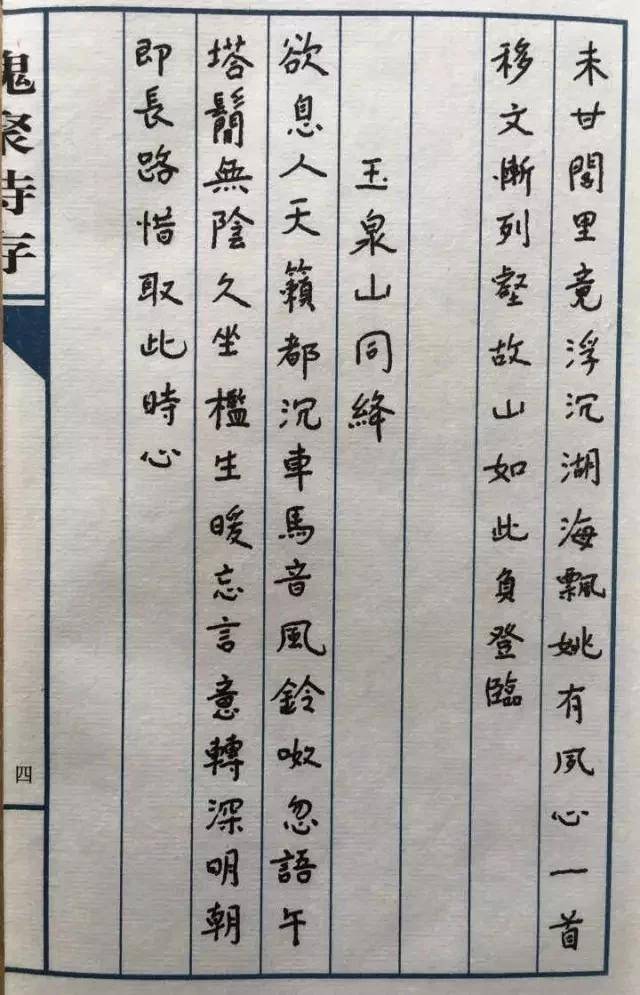 未甘閭里竟浮沉湖海飄姚有夙心一首
移文慚列壑故山如此負登臨
玉泉山同絳
欲息人天籟都沉車馬音風鈴呶忽語午
塔鬝無陰久坐檻生暖忘言意轉深明朝
即長路惜取此時心
槐聚詩存
四